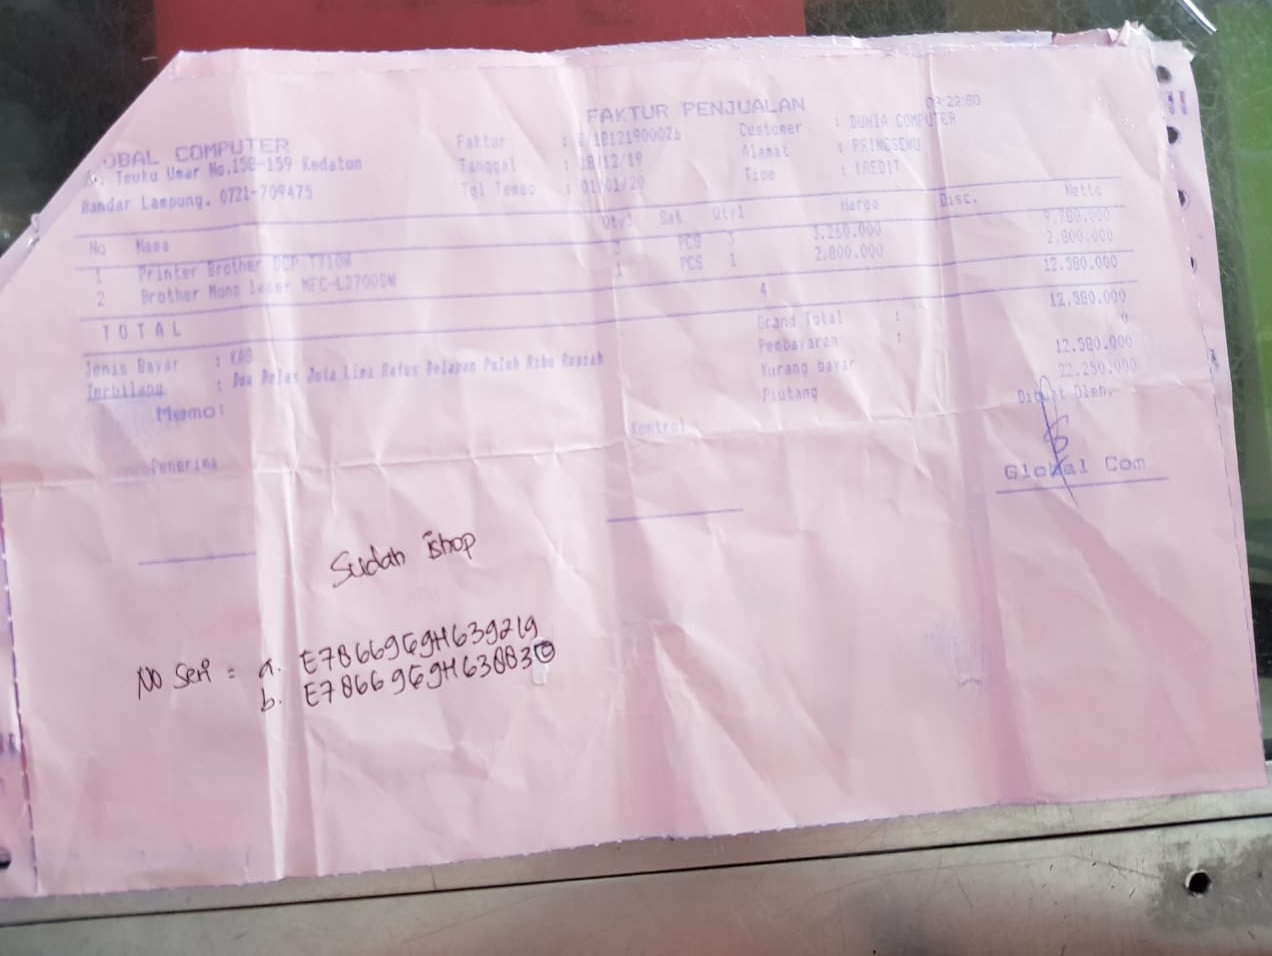 FAKTUR PENJUALAN
09:22:50
OBAL COMPUTER
Teuku Umar No.158-159 Kedaton
Bandar Lampung. 0721-709475
Faktur : 18121900026
Tanggal : 18/12/19
Tgl Tempo : 01/01/20
Customer : DUNIA COMPUTER
Alamat : PRINGSEWU
Tipe : KREDIT
No Nama Qty1 Sat Qty1 Harga Disc. Netto
1 Printer Brother DCP T710W 3 PCS 3 3.260.000 9.780.000
2 Brother Mono laser MFC-L2700DW 1 PCS 1 2.800.000 2.800.000
TOTAL 4 12.580.000
Jenis Bayar : KAS
Terbilang : Dua Belas Juta Lima Ratus Delapan Puluh Ribu Rupiah
Memo:
Grand Total : 12.580.000
Pembayaran : 0
Kurang bayar 12.580.000
Piutang 22.250.000
Penerima
Kontrol
Dibuat Oleh,
Global Com
Sudah ishop
No Seri = a. E78669G9H639219
b. E78669G9H638830